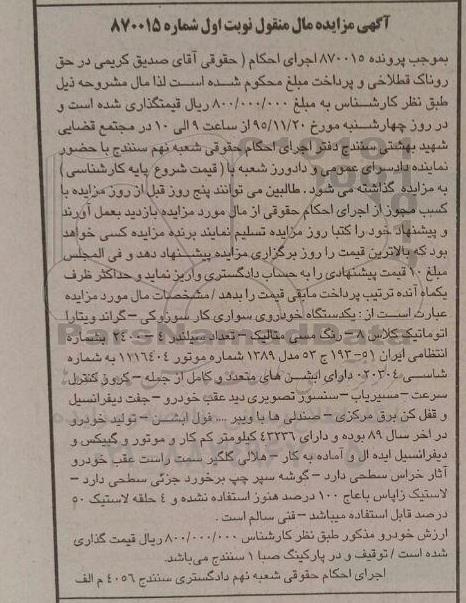 آگهی مزایده مال منقول نوبت اول شماره ۸۷۰۰۱۵
بموجب پرونده ۸۷۰۰۱۵ اجرای احکام ( حقوقی آقای صدیق کریمی در حق
روناک قطلاخی و پرداخت مبلغ محکوم شده است لذا مال مشروحه ذیل
طبق نظر کارشناس به مبلغ ۸۰۰/۰۰۰/۰۰۰ ریال قیمتگذاری شده است و
در روز چهارشنبه مورخ ۹۵/۱۱/۲۰ از ساعت ۹ الی ۱۰ در مجتمع قضایی
شهید بهشتی سنندج دفتر اجرای احکام حقوقی شعبه نهم سنندج با حضور
نماینده دادسرای عمومی و دادورز شعبه با ( قیمت شروع پایه کارشناسی )
به مزایده گذاشته می شود . طالبین می توانند پنج روز قبل از روز مزایده با
کسب مجوز از اجرای احکام حقوقی از مال مورد مزایده بازدید بعمل آورند
و پیشنهاد خود را کتبا روز مزایده تسلیم نمایند برنده مزایده کسی خواهد
بود که بالاترین قیمت را روز برگزاری مزایده پیشنهاد دهد و فی المجلس
مبلغ ۱۰ قیمت پیشنهادی را به حساب دادگستری واریز نماید و حداکثر ظرف
یکماه آنده ترتیب پرداخت مابقی قیمت را بدهد / مشخصات مال مورد مزایده
عبارت است از : یکدستگاه خودروی سواری کار سوزوکی – گراند ویتارا
اتوماتیک کلاس ۸ – رنگ مسی متالیک – تعداد سیلندر ۴ – ۲۴۰۰ بشماره
انتظامی ایران ۵۱ – ۱۹۳ ج ۵۳ مدل ۱۳۸۹ شماره موتور ۱۱۱۶۴۰۴ به شماره
شاسی ۰۲۰۳۰۴ دارای ابشن های متعدد و کامل از جمله – کروز کنترل
سرعت – مسیریاب – سنسور تصویری دید عقب خودرو – جفت دیفرانسیل
و قفل کن برق مرکزی – صندلی ها با ویبر .... فول ابشن – تولید خودرو
در اخر سال ۸۹ بوده و دارای ۴۳۲۳۶ کیلومتر کم کار و موتور و گیبکس و
دیفرانسیل ایده ال و آماده به کار – هلالی گلگیر سمت راست عقب خودرو
آثار خراس سطحی دارد – گوشه سپر چپ برخورد جزئی سطحی دارد –
لاستیک زاپاس باعاج ۱۰۰ درصد هنوز استفاده نشده و ۴ حلقه لاستیک ۵۰
درصد قابل استفاده میباشد – فنی سالم است .
ارزش خودرو مذکور طبق نظر کارشناس ۸۰۰/۰۰۰/۰۰۰ ریال قیمت گذاری
شده است / توقیف و در پارکینگ صبا ۱ سنندج می‌باشد.
اجرای احکام حقوقی شعبه نهم دادگستری سنندج ۴۰۵۶ م الف
ParsNamadData